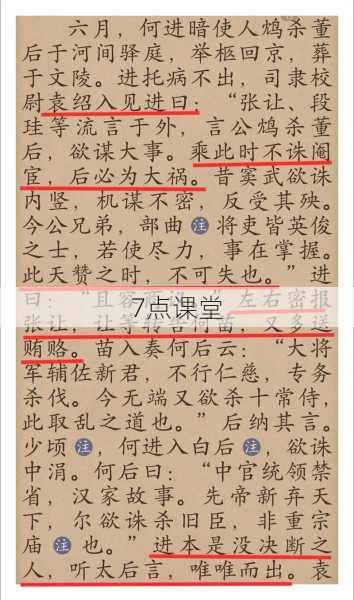 六月，何进暗使人鸩杀董
后于河间驿庭，举柩回京，葬
于文陵。进托病不出，司隶校
尉袁绍入见进曰：“张让、段
珪等流言于外，言公鸩杀董
后，欲谋大事。乘此时不诛阉
宦，后必为大祸。昔窦武欲诛
内竖，机谋不密，反受其殃。
今公兄弟，部曲注将吏皆英俊
之士，若使尽力，事在掌握。
此天赞之时，不可失也。”进
曰：“且容商议。”左右密报
7点课堂
张让，让等转告何苗，又多送
贿赂。苗入奏何后云：“大将
军辅佐新君，不行仁慈，专务
杀伐。今无端又欲杀十常侍，
此取乱之道也。”后纳其言。
少顷注，何进入白后注，欲诛
中涓。何后曰：“中官统领禁
省，汉家故事。先帝新弃天
下，尔欲诛杀旧臣，非重宗
庙注也。”进本是没决断之
人，听太后言，唯唯而出。袁